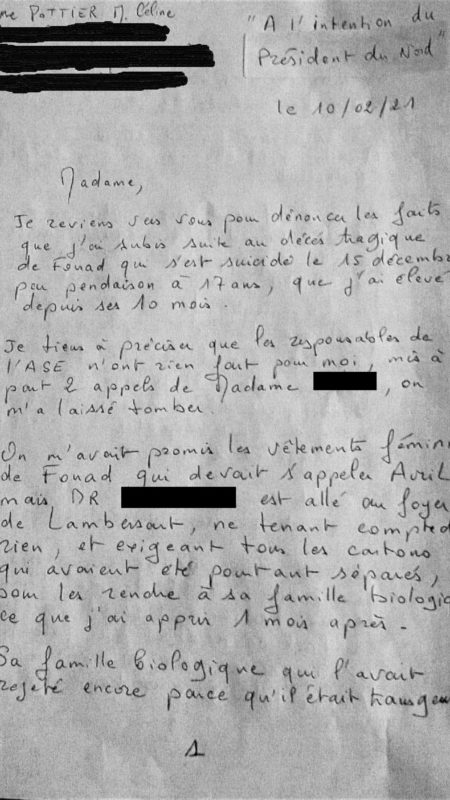 me POTTIER M. Céline
" A l'intention du
Président du Nord"
le 10/02/21
Madame,
Je reviens vers vous pour dénoncer les faits
que j'ai subis suite au décès tragique
de Fouad qui s'est suicidé le 15 décembr
par pendaison à 17 ans, que j'ai élevé
depuis ses 10 mois.
Je tiens à préciser que les responsables de
l'ASE n'ont rien fait pour moi, mis à
part 2 appels de Madame , on
m'a laissé tomber.
On m'avait promis les vêtements fémini
de Fouad qui devait s'appeler Avril
mais DR est allé au foyer
de Lambersart, ne tenant compte d
rien, et exigeant tous les cartons
qui avaient été pourtant séparés,
pour les rendre à sa famille biologiq
ce que j'ai appris 1 mois après.
Sa famille biologique qui l'avait
rejeté encore parce qu'il était transgen
1